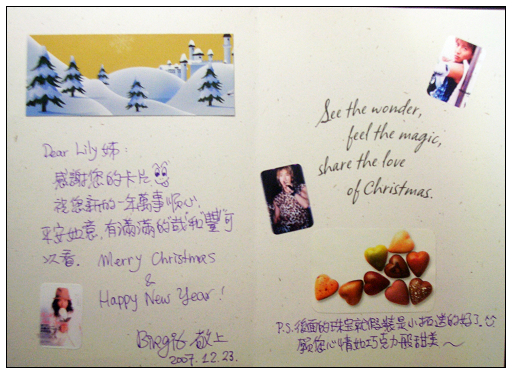 Dear Lily 姊:
感謝您的卡片
祝您新的一年萬事順心,
平安如意,有滿滿的"哉"和"豐"可
以看. Merry Christmas
&
Happy New Year!
敬上
2007.12.23.
See the wonder,
feel the magic,
share the love
of Christmas.
P.S. 後面的珠宝就假裝是小拓送的好了
願您心情如巧克力般甜美~